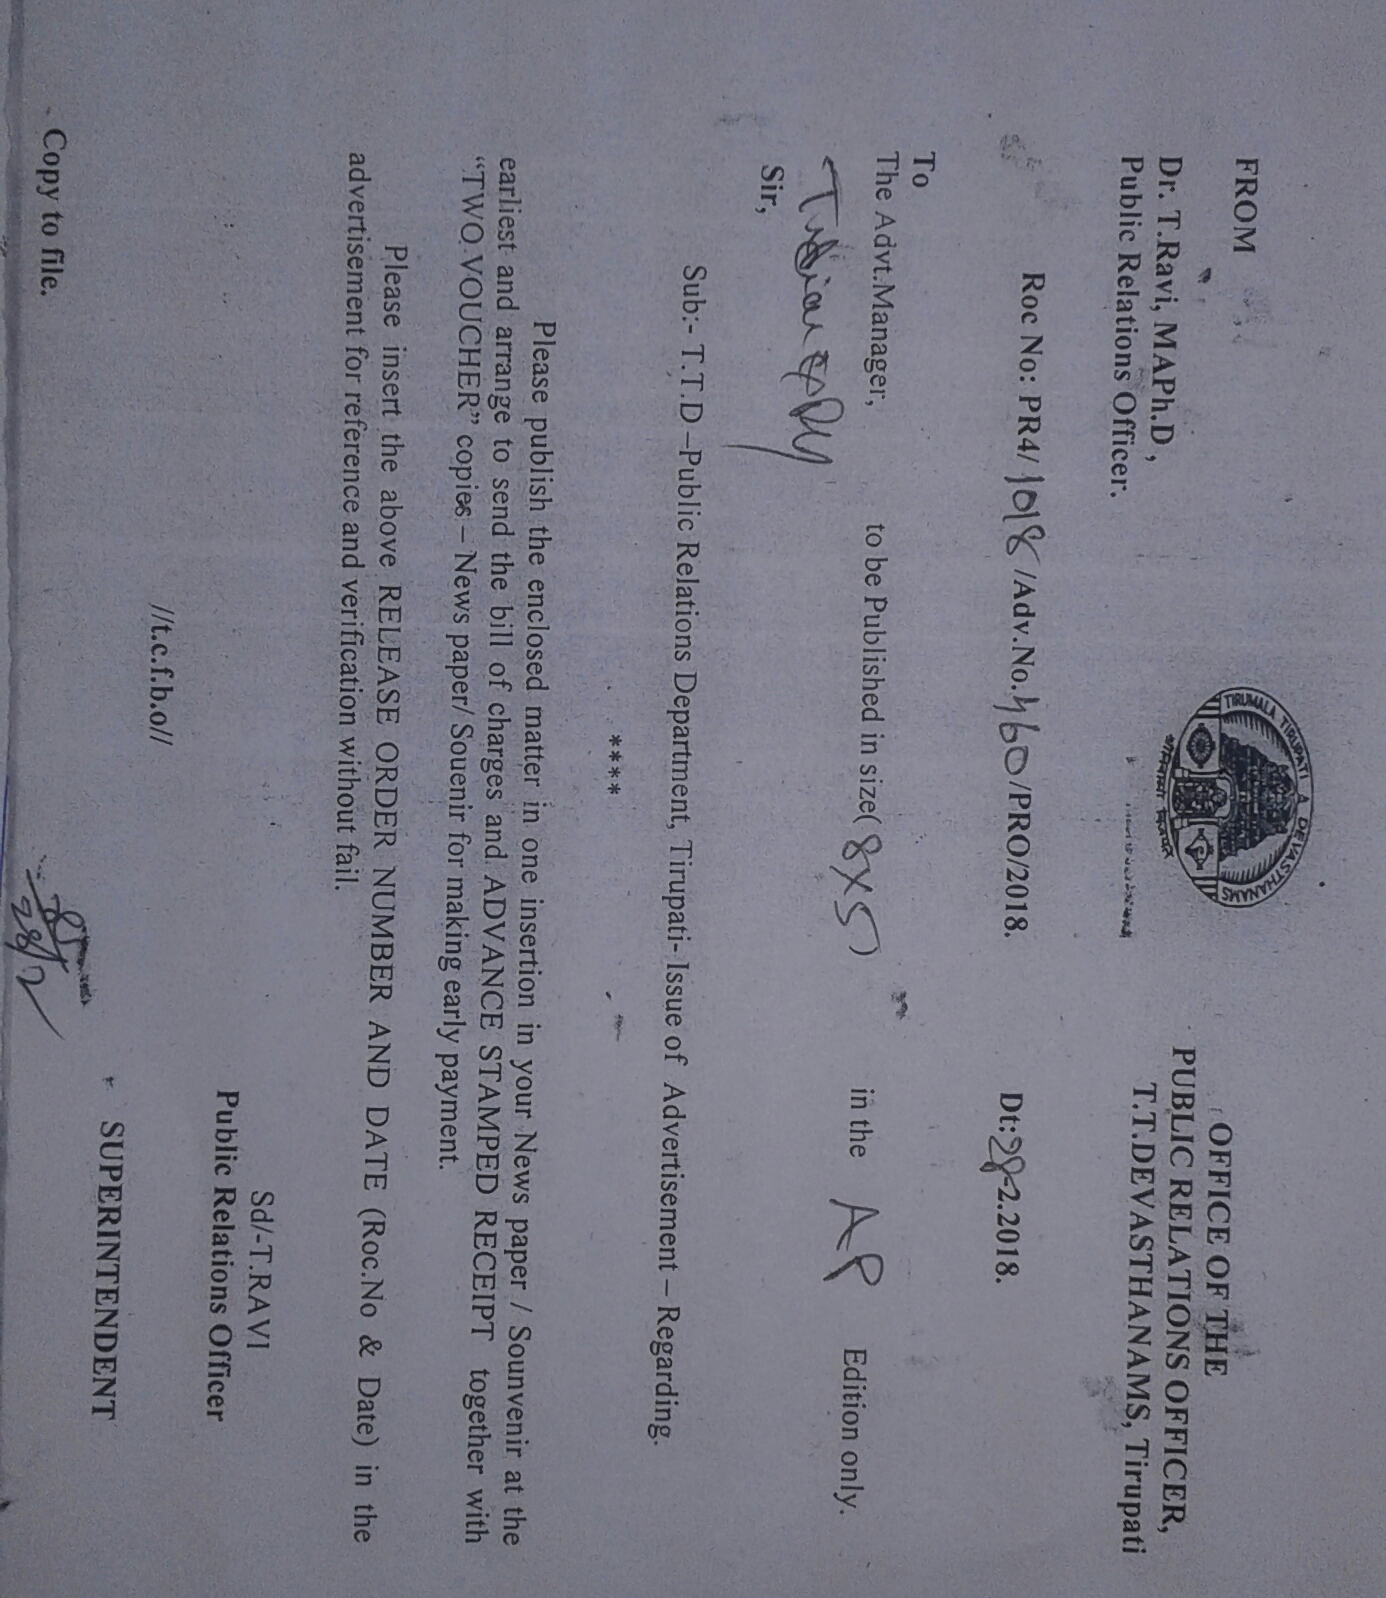 TIRUMALA TIRUPATI A DEVASTHANAMS
FROM
Dr. T.Ravi, MAPh.D ,
Public Relations Officer.
OFFICE OF THE
PUBLIC RELATIONS OFFICER,
T.T.DEVASTHANAMS, Tirupati
Roc No: PR4/ 1018 /Adv.No.460/PRO/2018. Dt:28-2.2018.
To
The Advt.Manager, to be Published in size( 8X5) in the AP Edition only.
Indian
Sir,
Sub:- T.T.D –Public Relations Department, Tirupati- Issue of Advertisement – Regarding.
****
Please publish the enclosed matter in one insertion in your News paper / Sounvenir at the
earliest and arrange to send the bill of charges and ADVANCE STAMPED RECEIPT together with
“TWO VOUCHER” copies – News paper/ Souenir for making early payment.
Please insert the above RELEASE ORDER NUMBER AND DATE (Roc.No & Date) in the
advertisement for reference and verification without fail.
Sd/-T.RAVI
Public Relations Officer
//t.c.f.b.o//
SUPERINTENDENT
28/2
Copy to file.